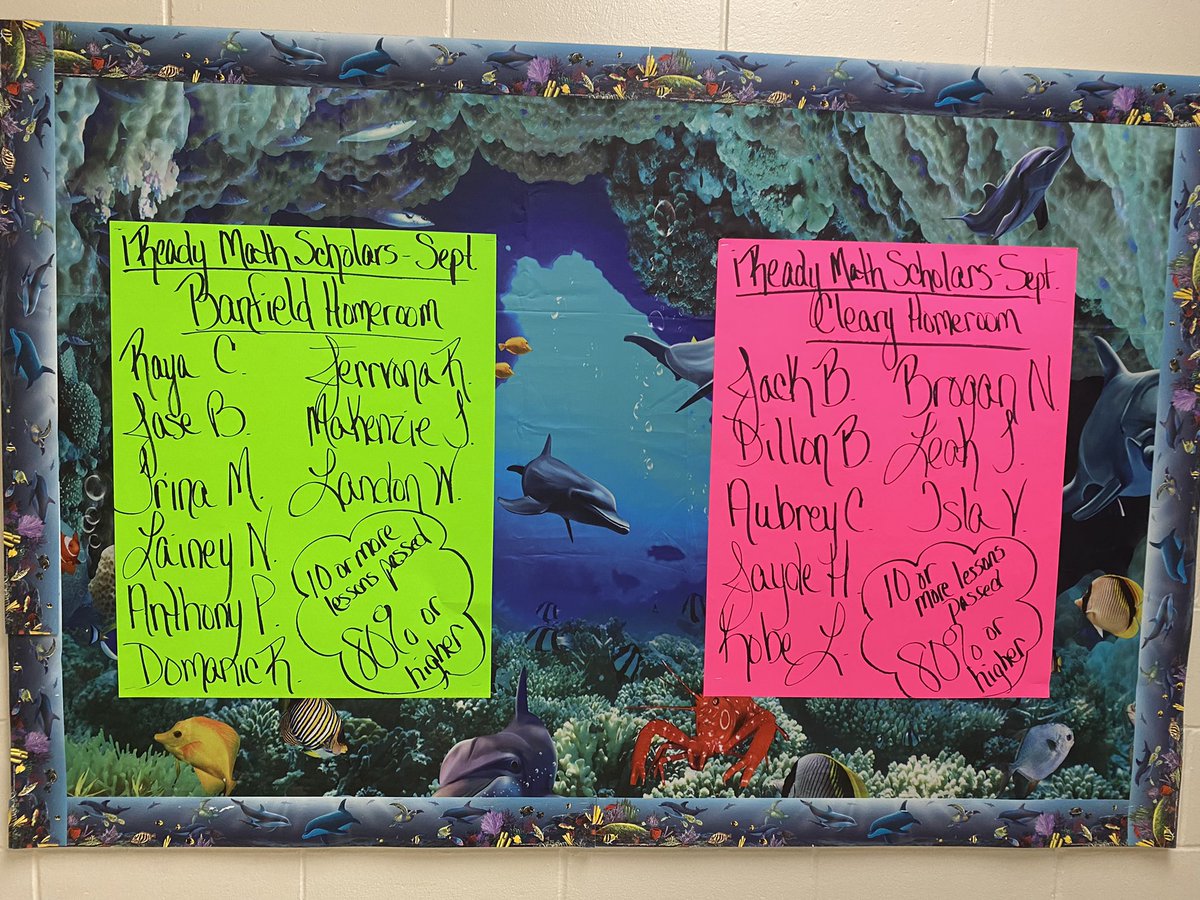 iReady Math Scholars - Sept
Banfield Homeroom
Raya C.
Jase B.
Irina M.
Lainey N.
Anthony P.
Domanic R.
Jerrvona R.
Makenzie J.
Landon W.
10 or more
lessons passed
80% or
higher
iReady Math Scholars - Sept.
Cleary Homeroom
Jack B.
Dillon B.
Aubrey C.
Jayde H
Kobe L.
Brogan N.
Leah J.
Isla V.
10 or
more lessons
passed
80% or
higher